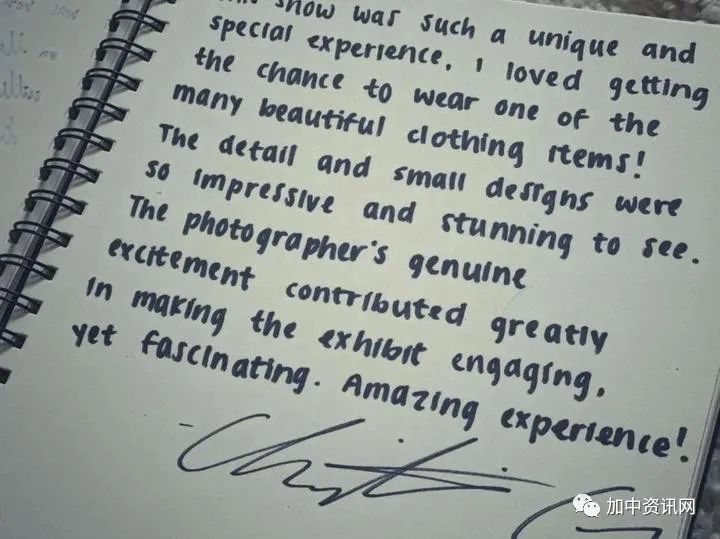 show was such a unique and
special experience. I loved getting
the chance to wear one of the
many beautiful clothing items!
The detail and small designs were
so impressive and stunning to see.
The photographer's genuine
excitement contributed greatly
in making the exhibit engaging,
yet fascinating. Amazing experience!
加中资讯网